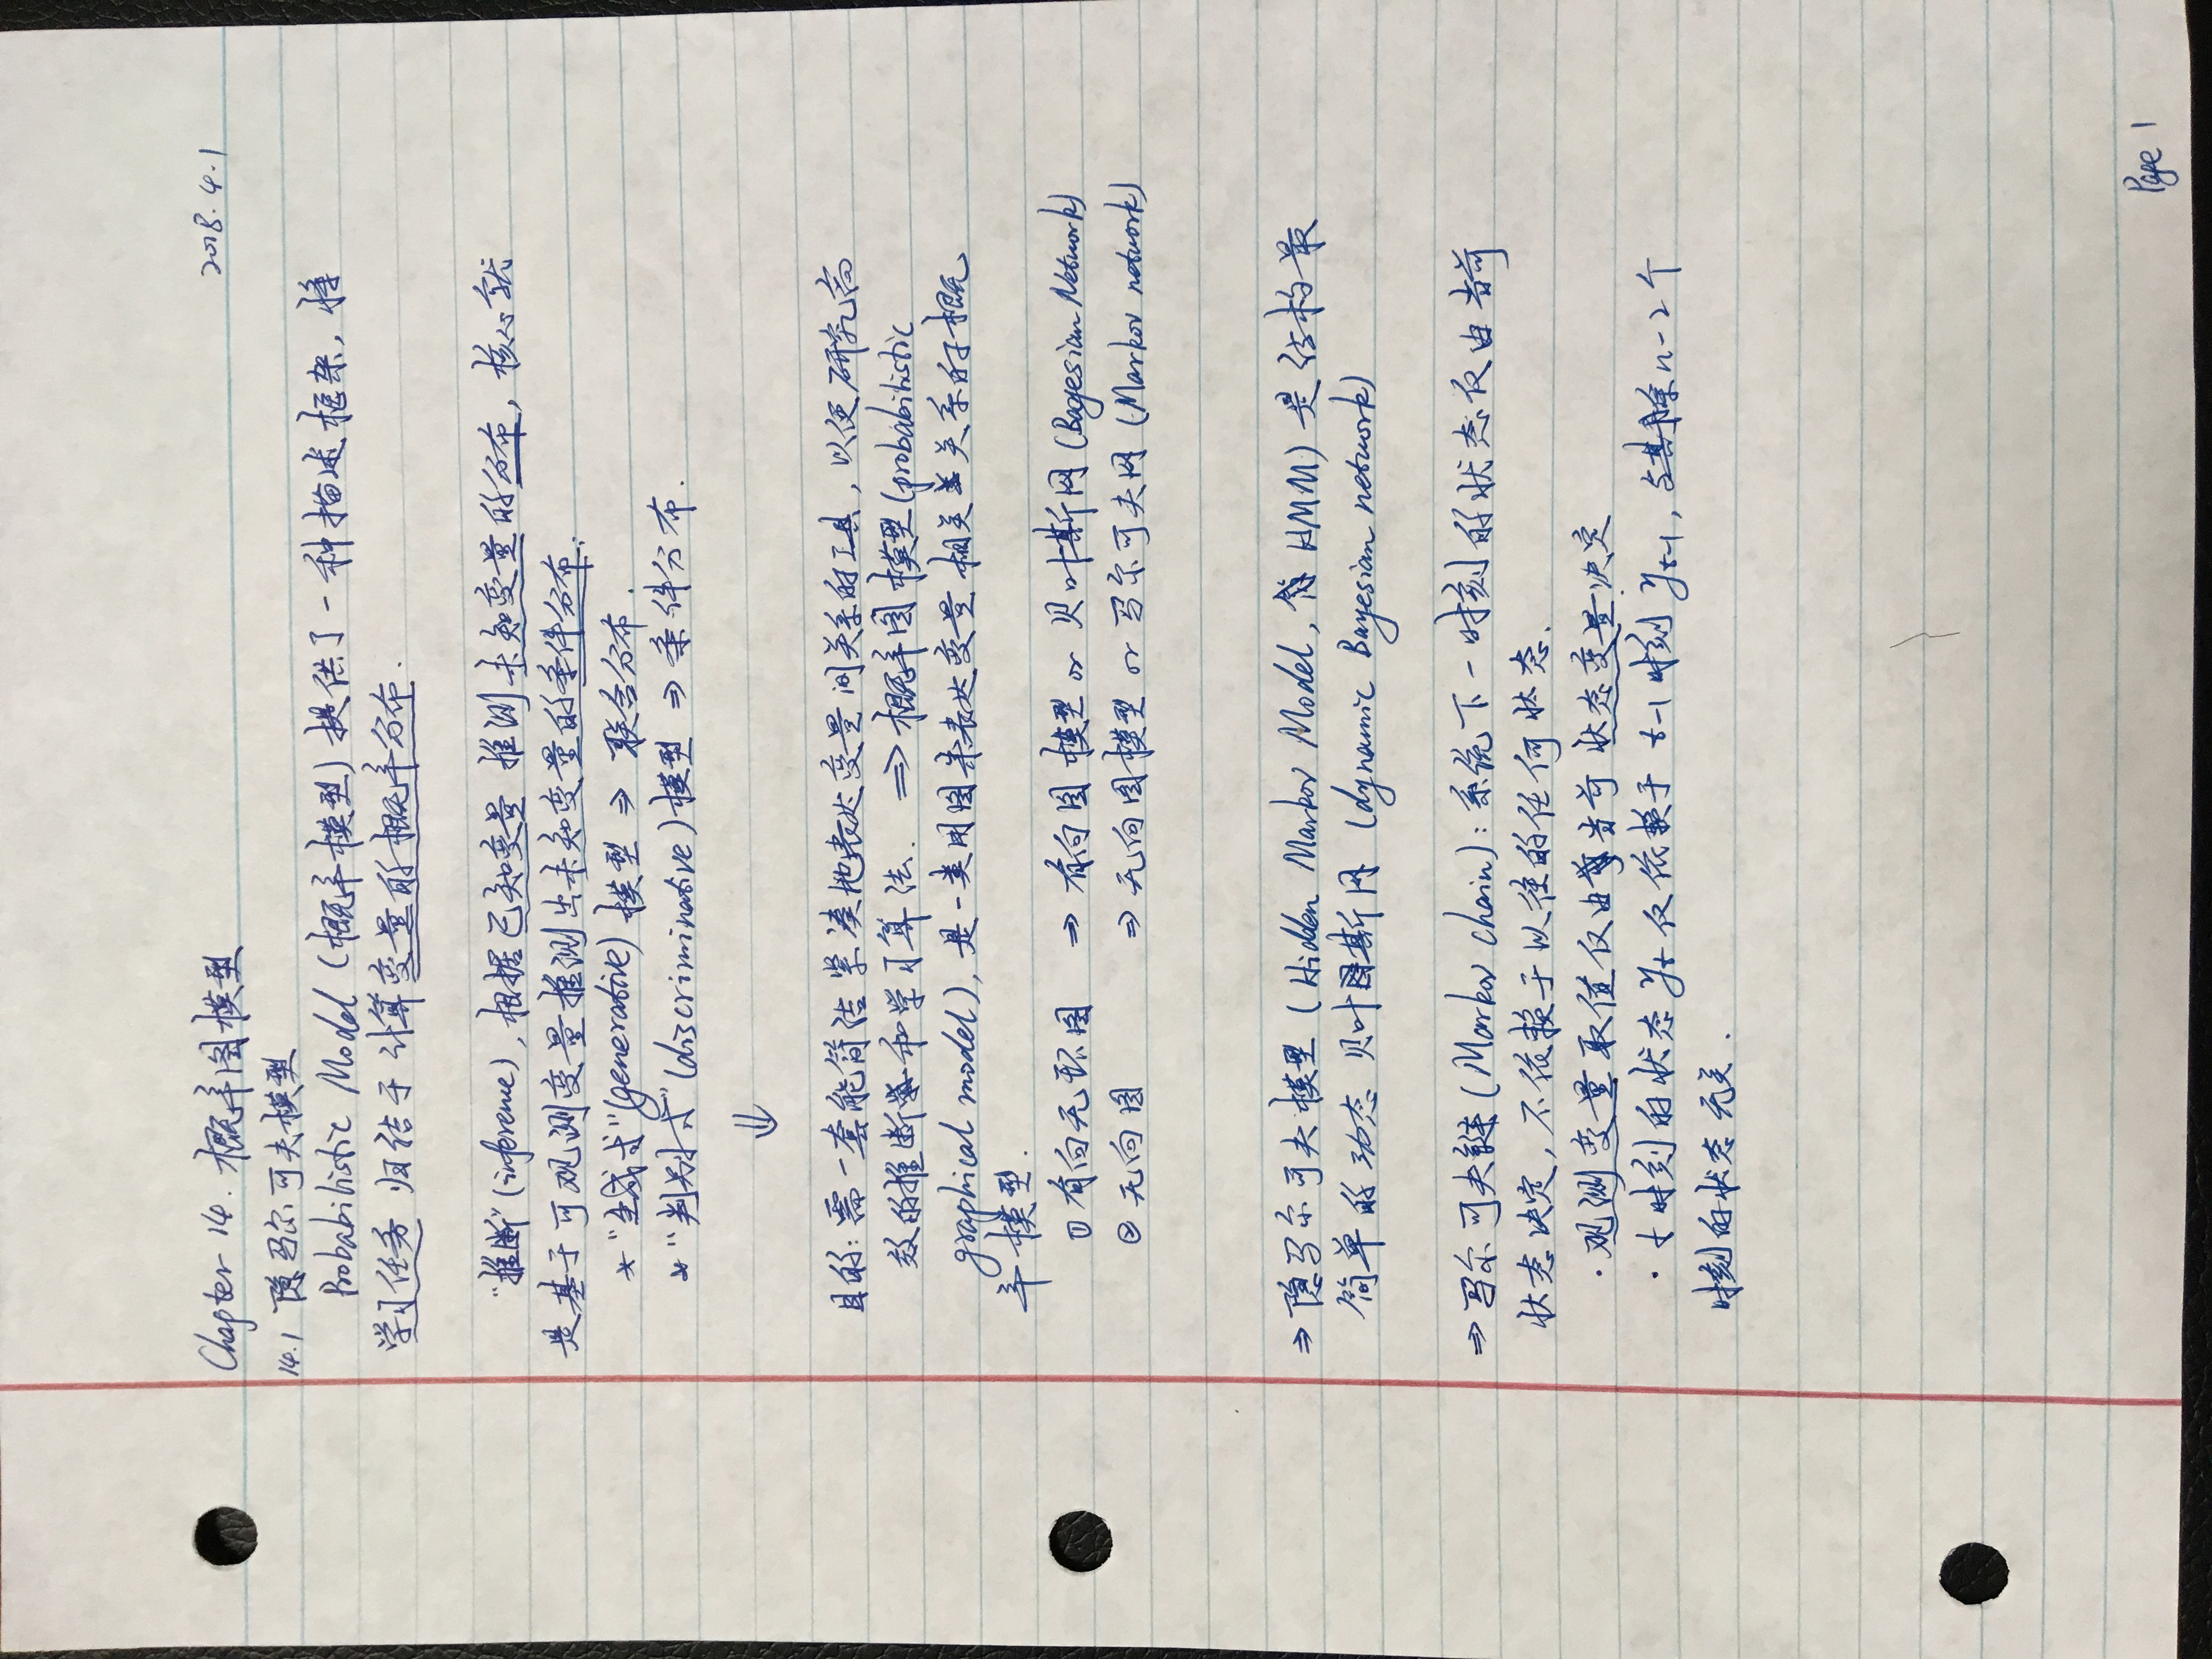 Chapter 14. 概率图模型
2018.4.1
14.1 隐马尔可夫模型
Probabilistic Model (概率模型) 提供了一种描述框架, 将
学习任务 归结于 计算变量的概率分布.
"推断"(inference), 根据已知变量 推测未知变量的分布, 核心就
是基于可观测变量推测出未知变量的条件分布.
* "生成式"(generative) 模型 ⇒ 联合分布.
* "判别式"(discriminative) 模型 ⇒ 条件分布.
⇓
目的: 需一套能简洁紧凑地表达变量间关系的工具, 以便研究高
效的推断和学习算法. ⇒ 概率图模型(probabilistic
graphical model), 是一类用图来表达变量相关关系的概
率模型.
① 有向无环图 ⇒ 有向图模型 or 贝叶斯网 (Bayesian Network)
② 无向图 ⇒ 无向图模型 or 马尔可夫网 (Markov network)
⇒ 隐马尔可夫模型 (Hidden Markov Model, 简 HMM) 是结构最
简单的动态贝叶斯网 (dynamic Bayesian network)
⇒ 马尔可夫链 (Markov chain): 系统下一时刻的状态仅由当前
状态决定, 不依赖于以往的任何状态.
· 观测变量取值仅由当前状态变量决定
· t时刻的状态 yt 仅依赖于 t-1 时刻 yt-1, 与其余n-2个
时刻的状态无关.
Page 1